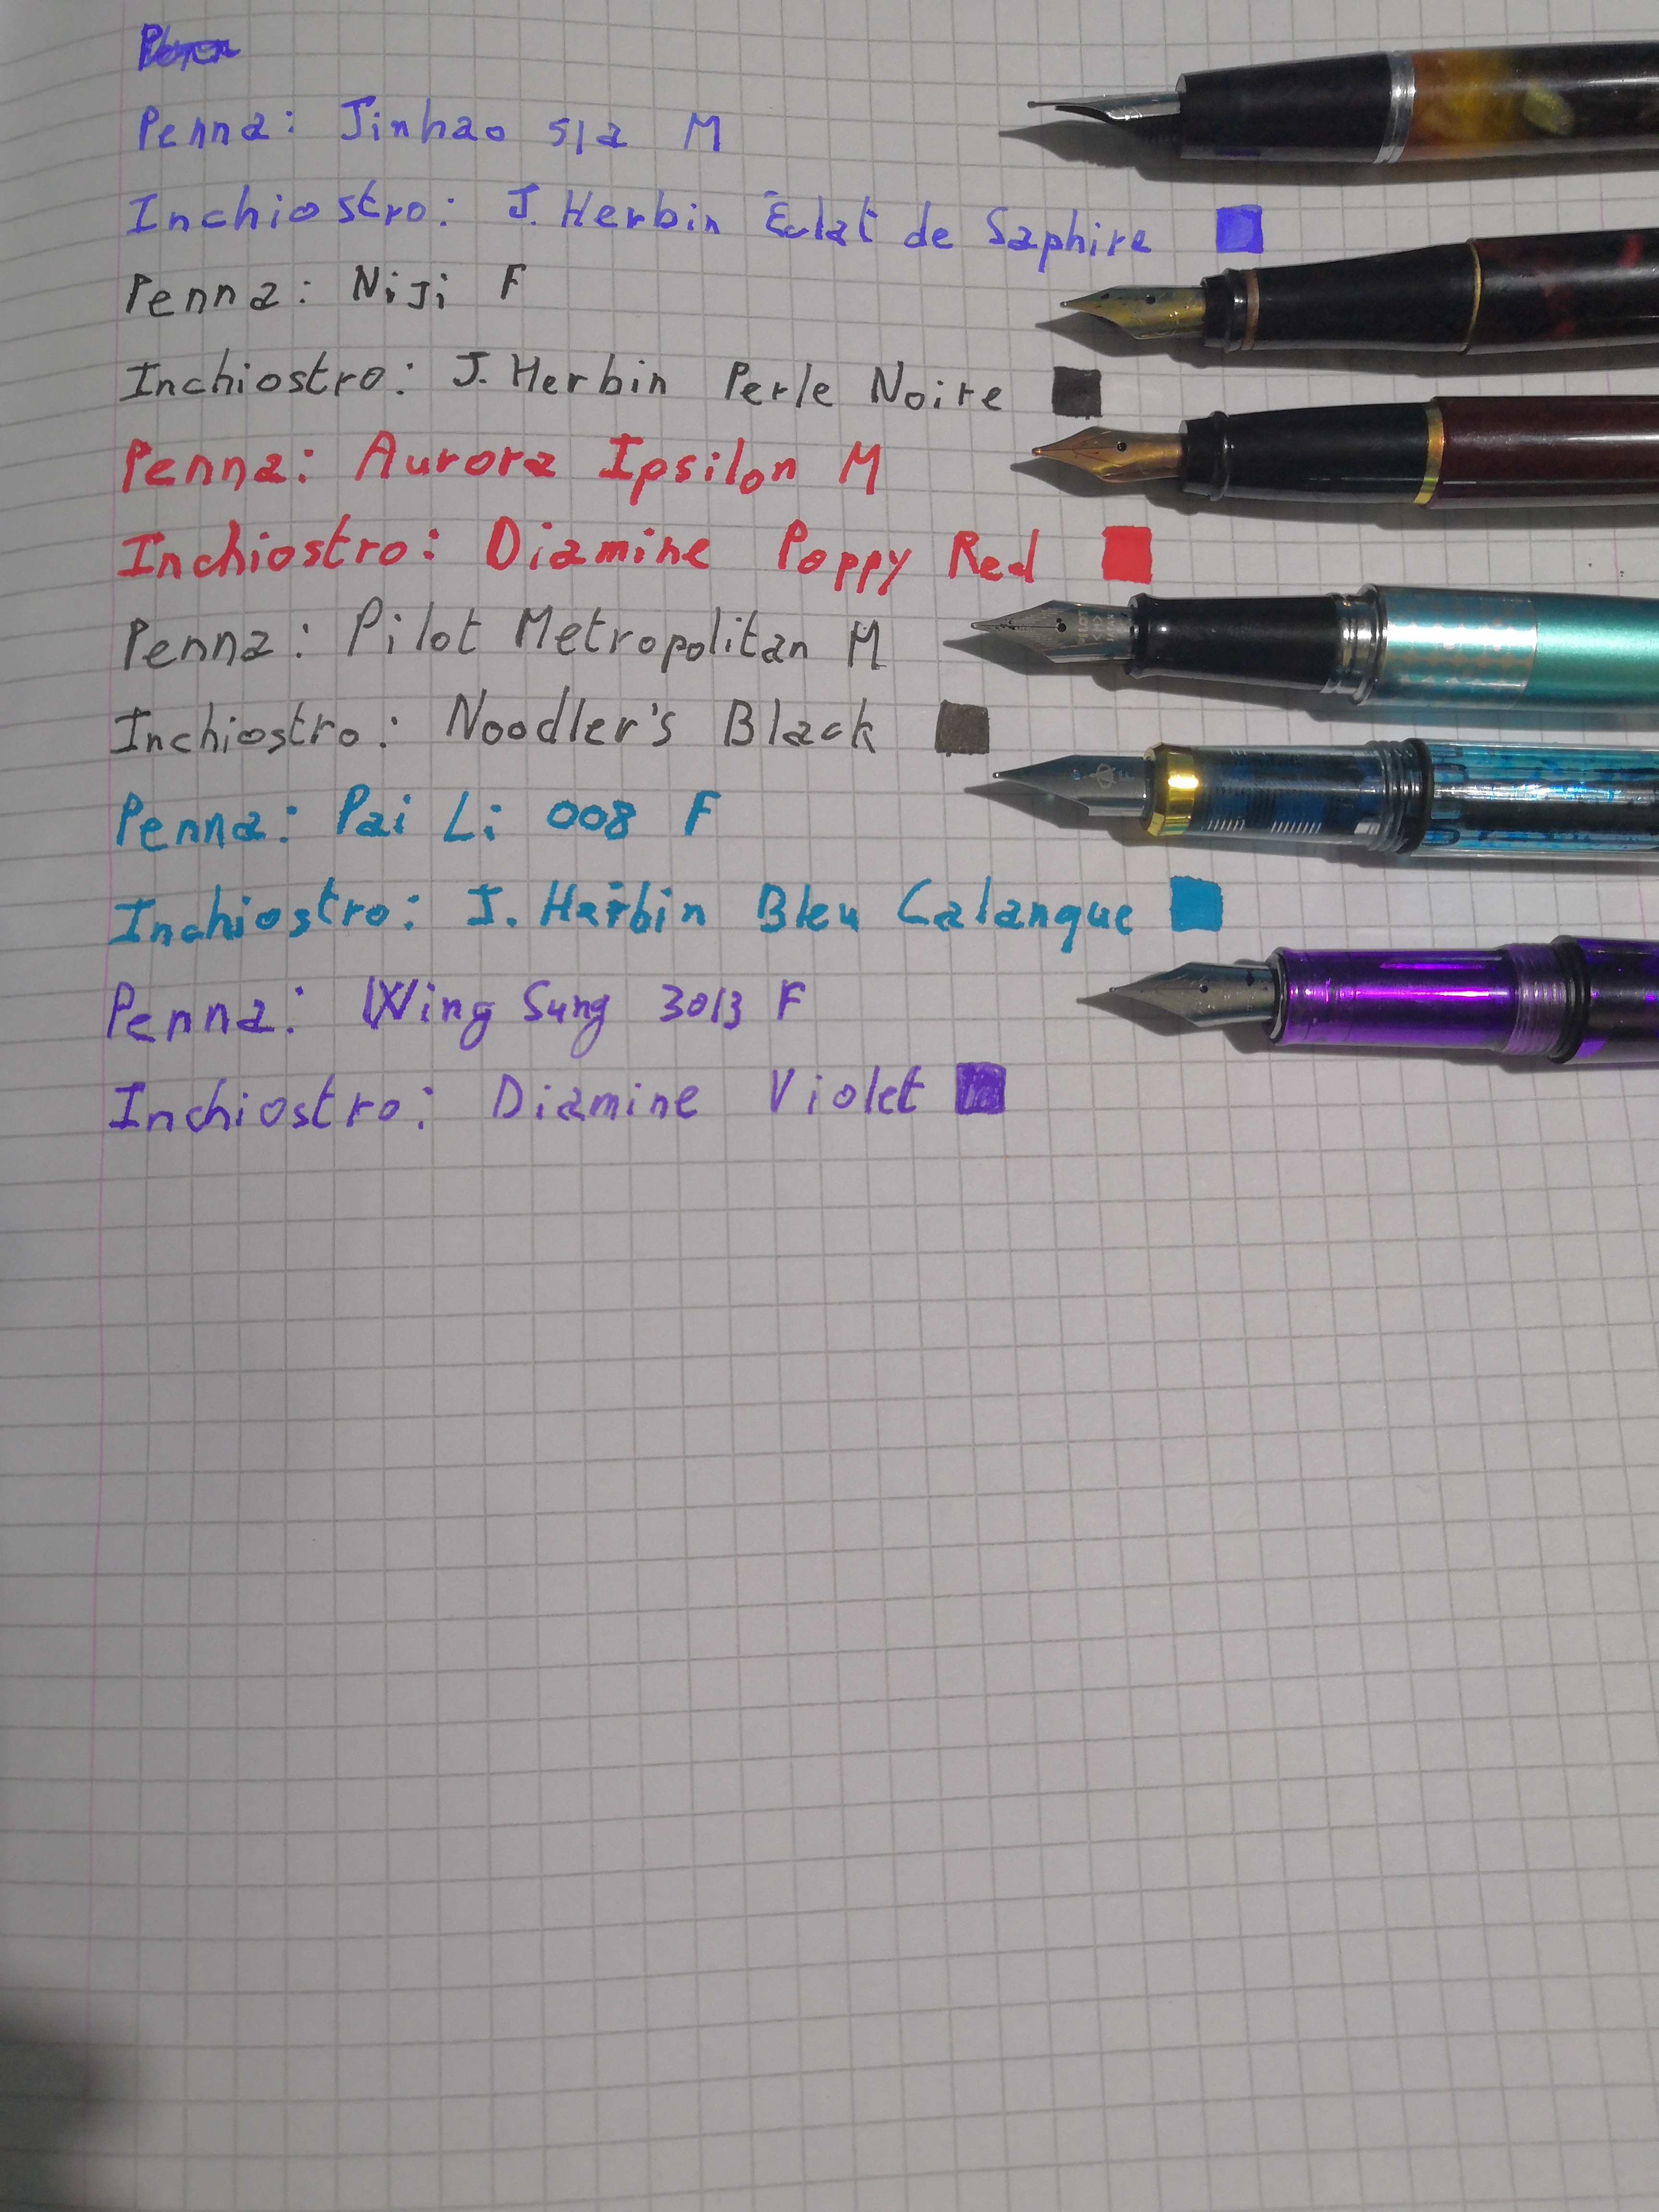 Penna: Jinhao 51a M
Inchiostro: J. Herbin Éclat de Saphire
Penna: Niji F
Inchiostro: J. Herbin Perle Noire
Penna: Aurora Ipsilon M
Inchiostro: Diamine Poppy Red
Penna: Pilot Metropolitan M
Inchiostro: Noodler's Black
Penna: Pai Li 008 F
Inchiostro: J. Herbin Bleu Calanque
Penna: Wing Sung 3013 F
Inchiostro: Diamine Violet